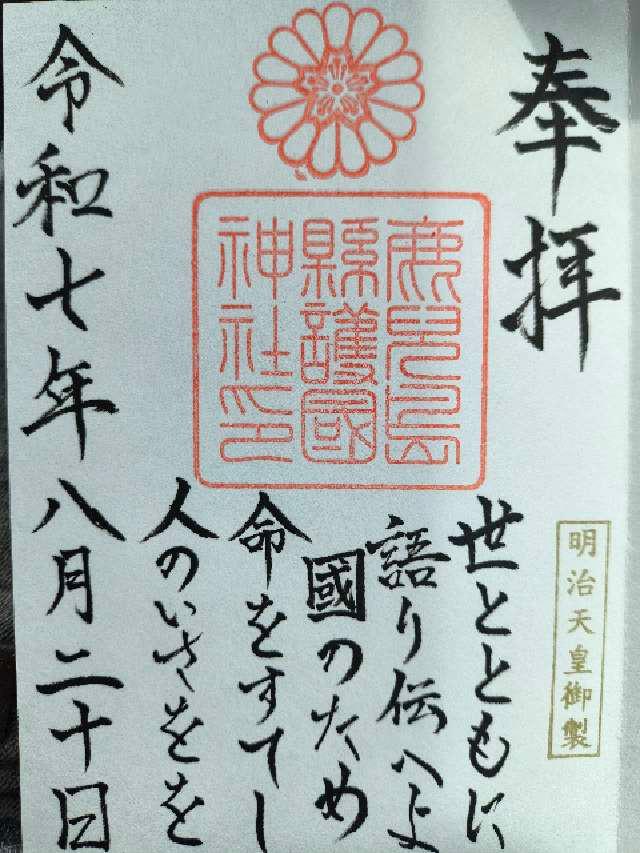 奉拝
明治天皇御製
鹿児島
縣護國
神社印
世とともに
語り伝へよ
國のため
命をすてし
人のいさをを
令和七年八月二十日